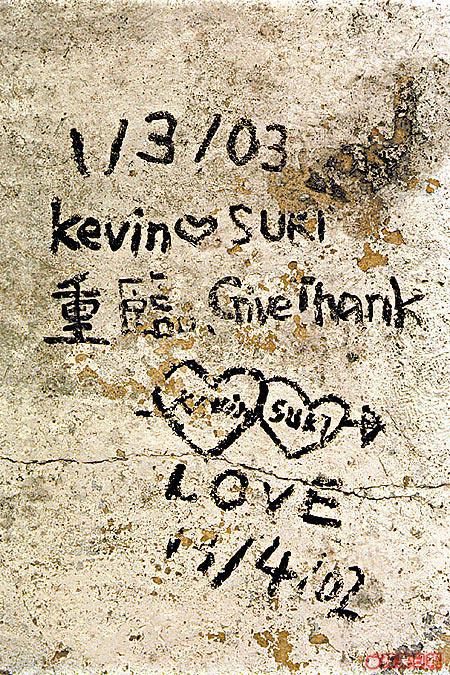 1/3/03
kevin♡SUKI
重臨、Give Thank
Kevin SUKI
LOVE
/4/02